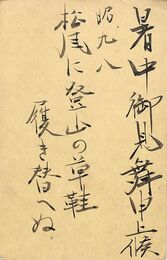 暑中御見舞申上候
昭、九、八
松尾に登山の草鞋
履き替へぬ